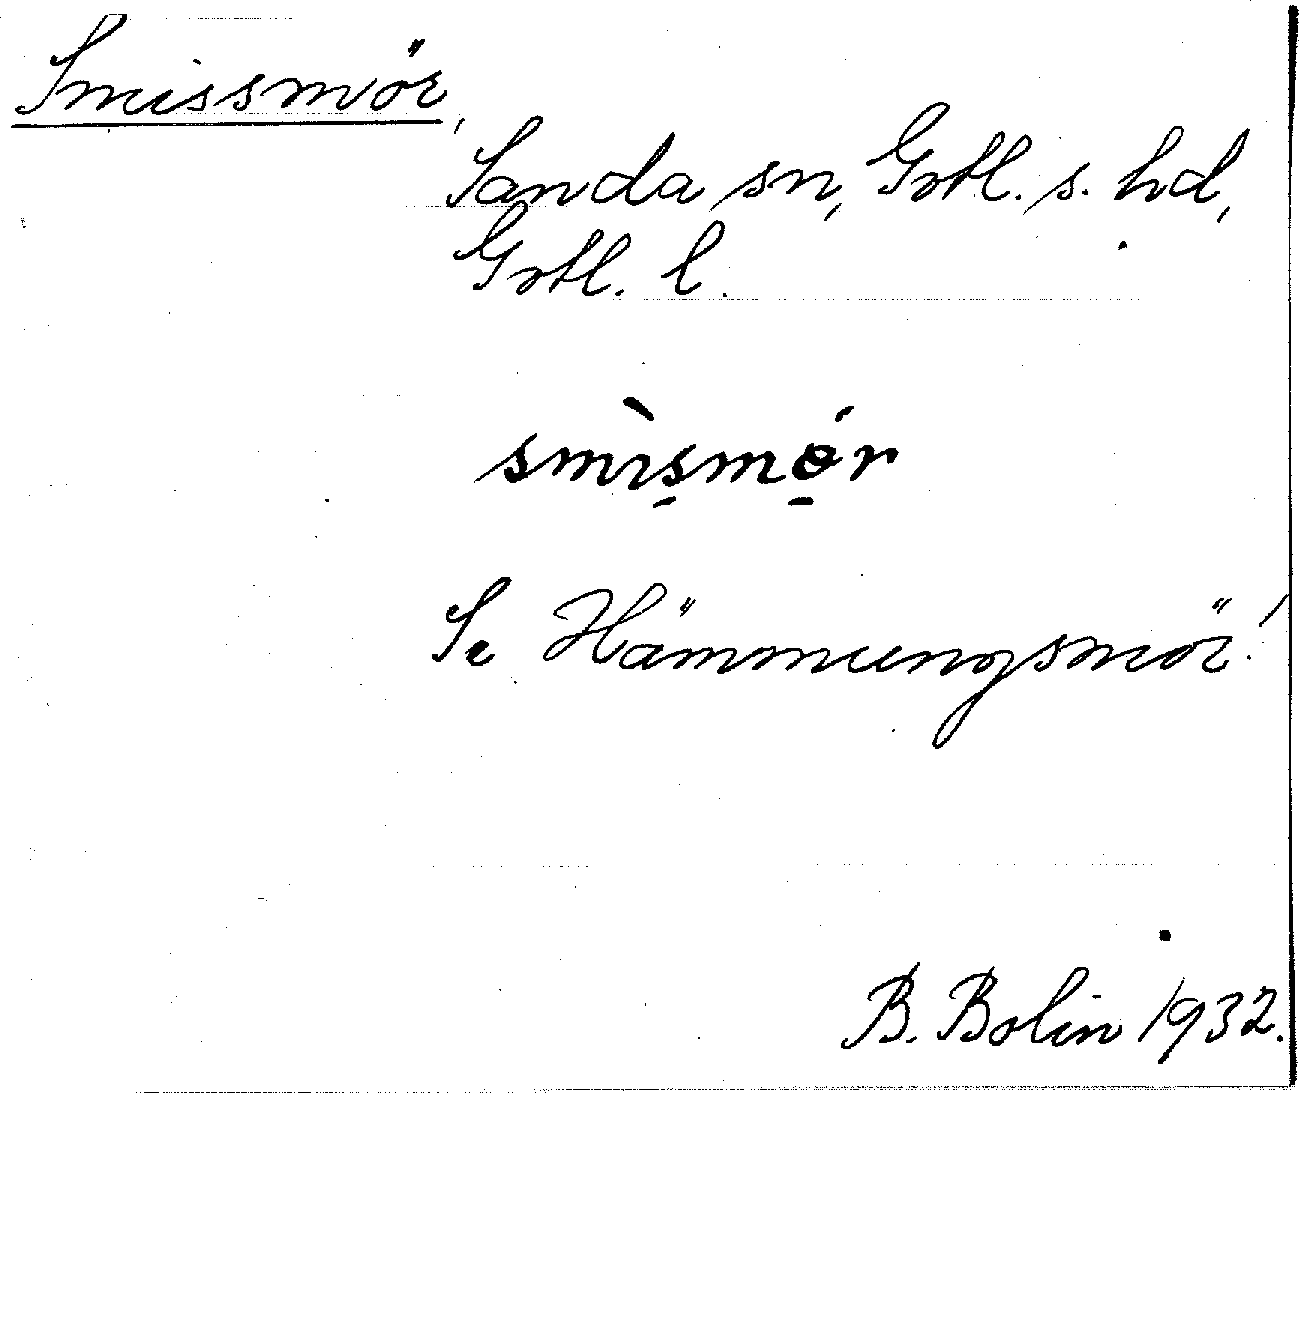 Smissmör,
Sanda sn, Gotl. s. hd,
Gotl. l.
smìs̱mө̱́r
Se Hämmungsmör!
B. Bolin 1932.